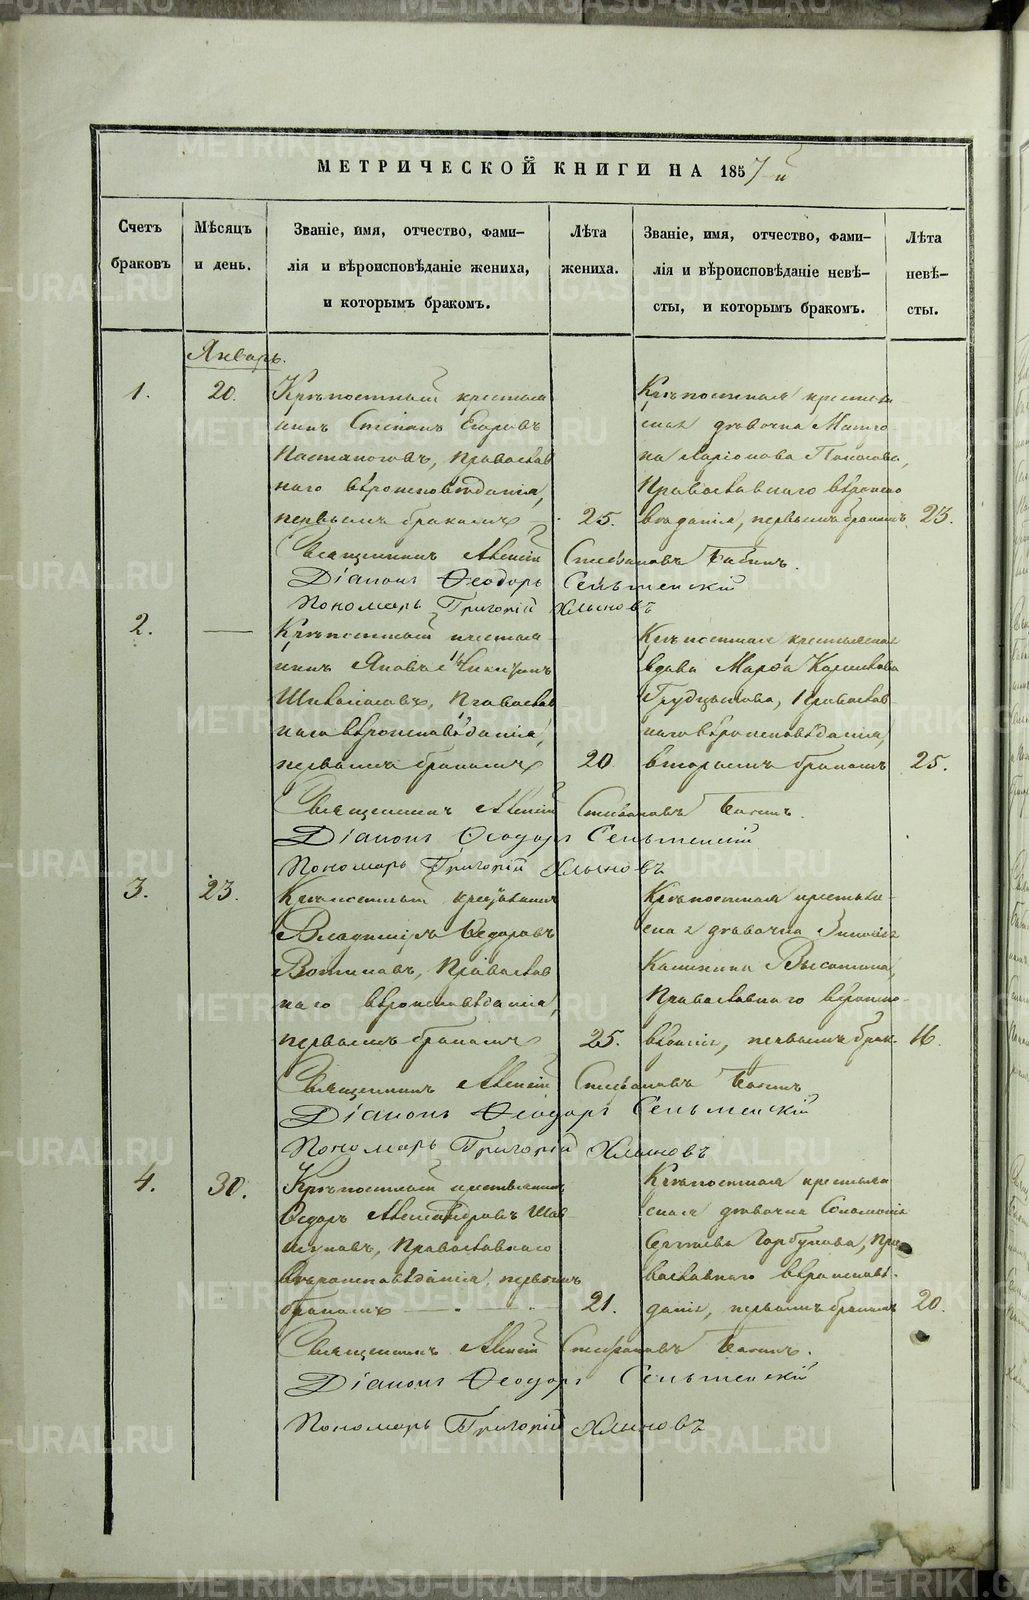 МЕТРИЧЕСКОЙ КНИГИ НА 1857 й
Счетъ браковъ
Мѣсяцъ и день.
Званіе, имя, отчество, фами-
лія и вѣроисповѣданіе жениха,
и которымъ бракомъ.
Лѣта жениха.
Званіе, имя, отчество, фами-
лія и вѣроисповѣданіе невѣ-
сты, и которымъ бракомъ.
Лѣта невѣ-
сты.
Январь.
1.
20.
Крѣпостный крестья
нинъ Степанъ Егоровъ
Православ
наго вѣроисповѣданія,
первымъ бракомъ
25.
Крѣпостная крестьян
ская дѣвочка Матро
на Ларіонова
Православнаго вѣроиспо
вѣданія, первымъ бракомъ
23.
Священникъ Алексій Стефановъ
Діаконъ Ѳеодоръ
Пономарь Григорій Хлыновъ
2.
Крѣпостный крестья
нинъ Яковъ
Православ
наго вѣроисповѣданія,
первымъ бракомъ
20
Крѣпостная крестьянская
вдова Марѳа
Православ
наго вѣроисповѣданія,
вторымъ бракомъ
25.
Священникъ Алексій Стефановъ
Діаконъ Ѳеодоръ
Пономарь Григорій Хлыновъ
3.
23.
Крѣпостный крестьянинъ
Владимiръ Ѳедоровъ
Вотиновъ, Православ
наго вѣроисповѣданія,
первымъ бракомъ
25.
Крѣпостная крестьян
ская дѣвочка
Православнаго вѣроиспо-
вѣданія, первымъ брак.
16.
Священникъ Алексій Стефановъ
Діаконъ Ѳеодоръ
Пономарь Григорій Хлыновъ
4.
30.
Крѣпостный крестьянинъ
Ѳедоръ Александровъ
Православнаго
вѣроисповѣданія, первымъ
бракомъ
21.
Крѣпостная крестьян
ская дѣвочка Соломонія
Сергѣева Горбунова, Пра
вославнаго вѣроисповѣ-
данія, первымъ бракомъ
20.
Священникъ Алексій Стефановъ
Діаконъ Ѳеодоръ
Пономарь Григорій Хлыновъ
METRIKI.GASO-URAL.RU